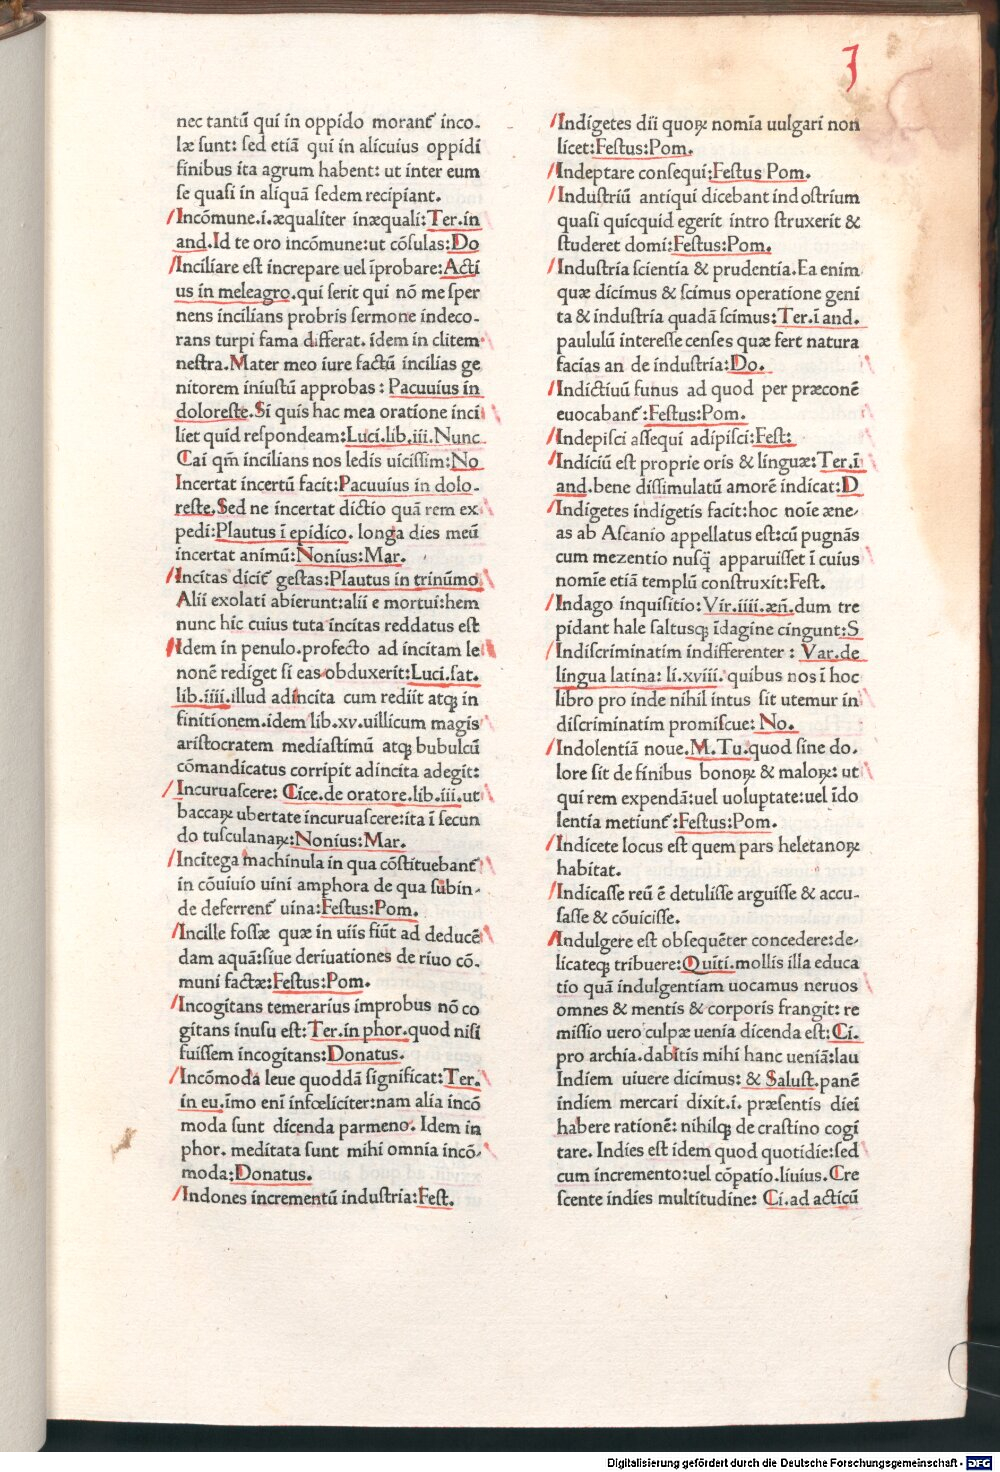 I
nec tantū qui in oppido morant᷑ inco-
læ sunt: sed etiā qui in alicuius oppidi
finibus ita agrum habent: ut inter eum
se quasi in aliquā sedem recipiant.
Incōmune.i.æqualiter inæquali:Ter.in
and.Id te oro incōmune:ut cōsulas:Do
Inciliare est increpare uel īprobare:Acti
us in meleagro.qui serit qui nō me sper
nens incilians probris sermone indeco-
rans turpi fama differat. idem in clitem
nestra.Mater meo iure factū incilias ge
nitorem iniustū approbas : Pacuuius in
doloreste.Si quis hac mea oratione inci
liet quid respondeam:Luci.lib.iii.Nunc
Cai qm̄ incilians nos ledis uicissim:No
Incertat incertū facit:Pacuuius in dolo-
reste.Sed ne incertat dictio quā rem ex
pedi:Plautus ī epidico. longa dies meū
incertat animū:Nonius:Mar.
Incitas dicit᷑ gestas:Plautus in trinūmo
Alii exolati abierunt:alii e mortui:hem
nunc hic cuius tuta incitas reddatus est
Idem in penulo.profecto ad incitam le
nonē rediget si eas obduxerit:Luci.sat.
lib.iiii.illud adincita cum rediit atqꝫ in
finitionem.idem lib.xv.uillicum magis
aristocratem mediastimū atqꝫ bubulcū
cōmandicatus corripit adincita adegit:
Incuruascere: Cice.de oratore.lib.iii.ut
baccaꝝ ubertate incuruascere:ita ī secun
do tusculanaꝝ:Nonius:Mar.
Incitega machinula in qua cōstituebant᷑
in cōuiuio uini amphora de qua subin-
de deferrent᷑ uina:Festus:Pom.
Incille fossæ quæ in uiis fiūt ad deducē
dam aquā:siue deriuationes de riuo cō-
muni factæ:Festus:Pom.
Incogitans temerarius improbus nō co
gitans inusu est: Ter.in phor.quod nisi
fuissem incogitans:Donatus.
Incōmoda leue quoddā significat:Ter.
in eu.imo eni infœliciter:nam alia incō
moda sunt dicenda parmeno. Idem in
phor. meditata sunt mihi omnia incō-
moda:Donatus.
Indones incrementū industria:Fest.
Indigetes dii quoꝝ nomīa uulgari non
licet:Festus:Pom.
Indeptare consequi:Festus Pom.
Industriū antiqui dicebant indostrium
quasi quicquid egerit intro struxerit &
studeret domi:Festus:Pom.
Industria scientia & prudentia.Ea enim
quæ dicimus & scimus operatione geni
ta & industria quadā scimus:Ter.ī and.
paululū interesse censes quæ fert natura
facias an de industria:Do.
Indictiuū funus ad quod per præconē
euocabant᷑ :Festus:Pom.
Indepisci assequi adipisci:Fest:
Indiciū est proprie oris & linguæ:Ter.ī
and.bene dissimulatū amorē indicat:D
Indigetes indigetis facit:hoc noīe æne-
as ab Ascanio appellatus est:cū pugnās
cum mezentio nusq̄ apparuisset ī cuius
nomīe etiā templū construxit:Fest.
Indago inquisitio: Vir.iiii.æn̄.dum tre
pidant hale saltusqꝫ īdagine cingunt:S
Indiscriminatim indifferenter : Var.de
lingua latina: li.xviii. quibus nos ī hoc
libro pro inde nihil intus sit utemur in
discriminatim promiscue: No.
Indolentiā noue.M.Tu:quod sine do.
lore sit de finibus bonoꝝ & maloꝝ: ut
qui rem expendā:uel uoluptate:uel īdo
lentia metiunt᷑ :Festus:Pom.
Indicete locus est quem pars heletanoꝝ
habitat.
Indicasse reū ē detulisse arguisse & accu-
sasse & cōuicisse.
Indulgere est obsequēter concedere:de-
licateqꝫ tribuere:Quiti.mollis illa educa
tio quā indulgentiam uocamus neruos
omnes & mentis & corporis frangit: re
missio uero culpæ uenia dicenda est: Ci.
pro archia.dabitis mihi hanc ueniā:lau
Indiem uiuere dicimus: & Salust.panē
indiem mercari dixit.i. præsentis diei
habere rationē: nihilqꝫ de crastino cogi
tare. Indies est idem quod quotidie:sed
cum incremento:uel cōpatio.liuius.Cre
scente indies multitudine: Ci.ad acticū
Digitalisierung gefördert durch die Deutsche Forschungsgemeinschaft - DFG